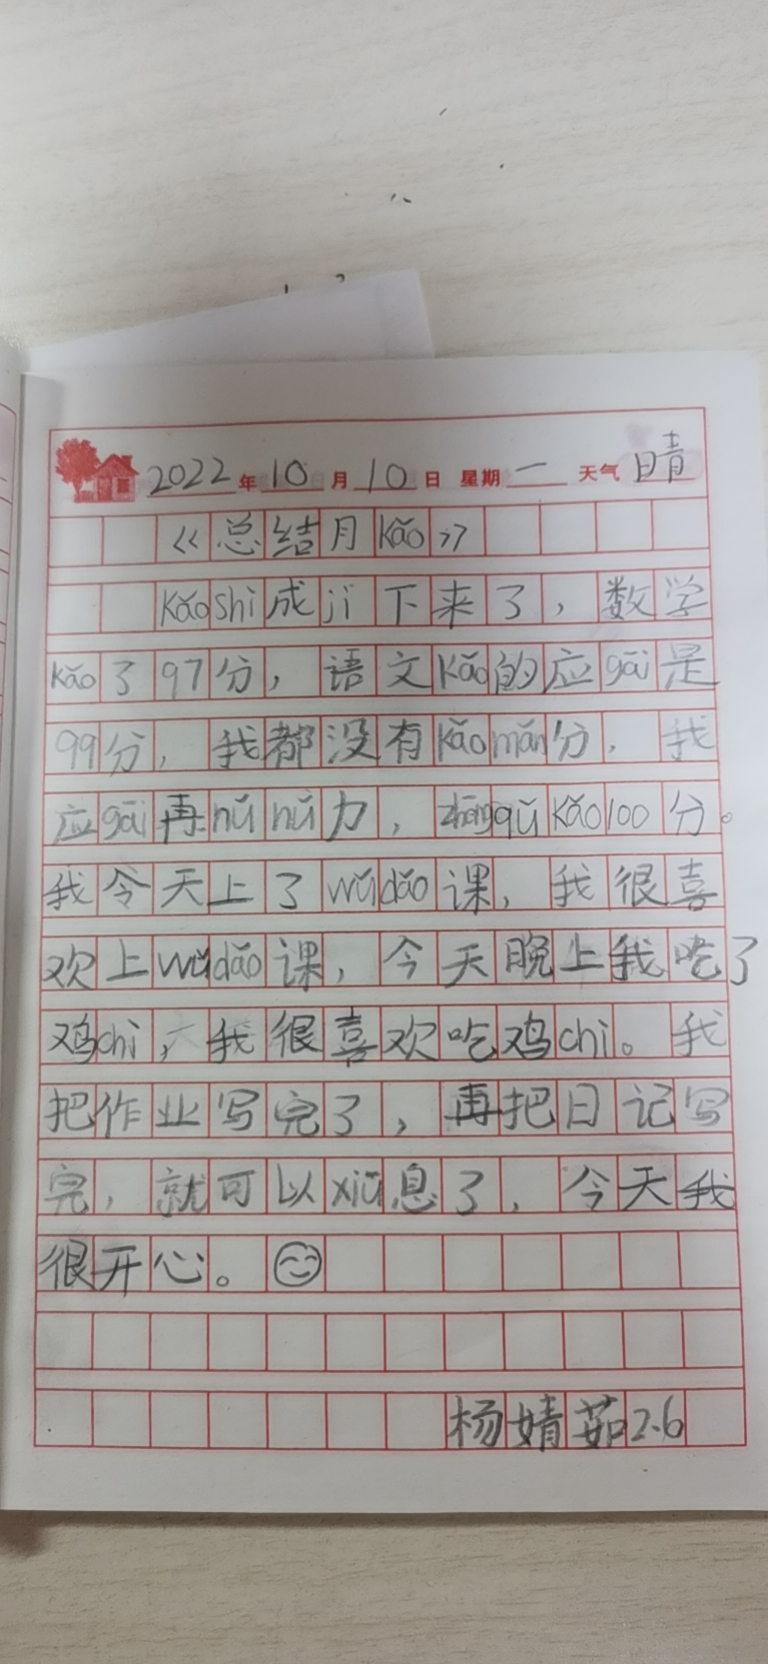 2022年10月10日 星期一 天气晴
《总结月kǎo》
kǎoshì成jì下来了，数学
kǎo了97分，语文kǎo的应gāi是
99分，我都没有kǎomǎn分，我
应gāi再nǔnǔ力，zhēngqǔkǎo100分。
我今天上了wǔdǎo课，我很喜
欢上wǔdǎo课，今天晚上我吃了
鸡chì，我很喜欢吃鸡chì。我
把作业写完了，再把日记写
完，就可以xiū息了，今天我
很开心。😊
杨婧茹2.6